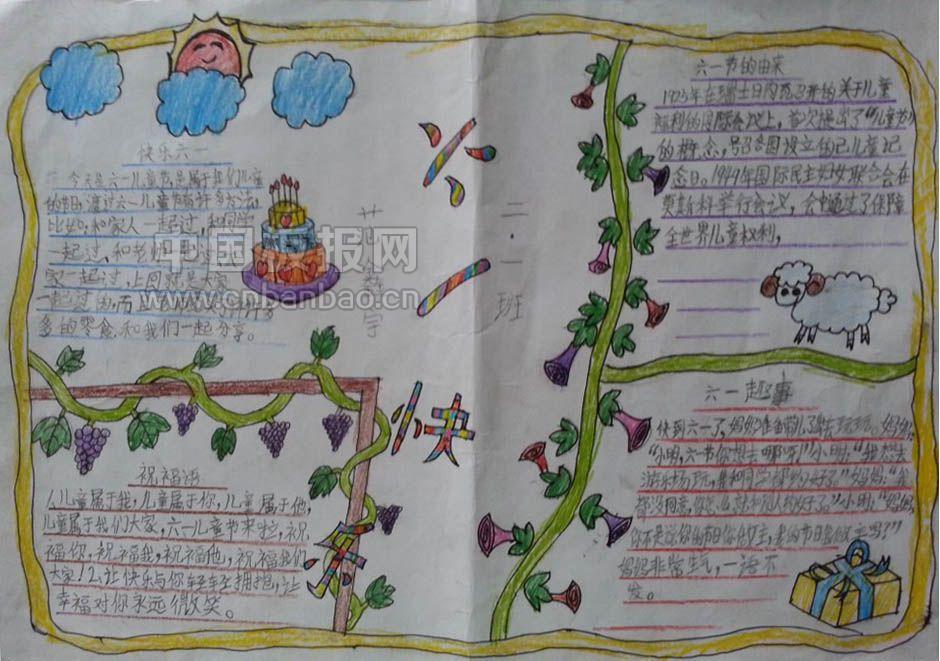 快乐六一
今天是六一儿童节是属于我们儿童
的节日，渡过六一儿童节有许多方法，
比如：和家人一起过，和同学
一起过，和老师一起过，
家一起过，上回就是大家
一起过的，而且
多的零食和我们一起分享。
祝福语
1、儿童属于我，儿童属于你，儿童属于他，
儿童属于我们大家，六一儿童节来啦，祝
福你，祝福我，祝福他，祝福我们
大家！2、让快乐与你轻轻拥抱，让
幸福对你永远微笑。
六一快乐
二·一班
宇
六一节的由来
1925年在瑞士日内瓦召开的关于儿童
福利的国际会议上，首次提出了“儿童节”
的概念，号召各国设立自己儿童记
念日。1949年国际民主妇女联合会在
莫斯科举行会议，会中通过了保障
全世界儿童权利，
六一趣事
快到六一了，妈妈准备带儿子去玩玩。妈妈：
“小明，六一节你想去哪呀”小明：“我想去
游乐场玩，
小明：“妈妈，
你不是说你的节日你做主，我的节日我做主吗？”
妈妈非常生气，一语不
发。
中国板报网
www.cnbanbao.cn